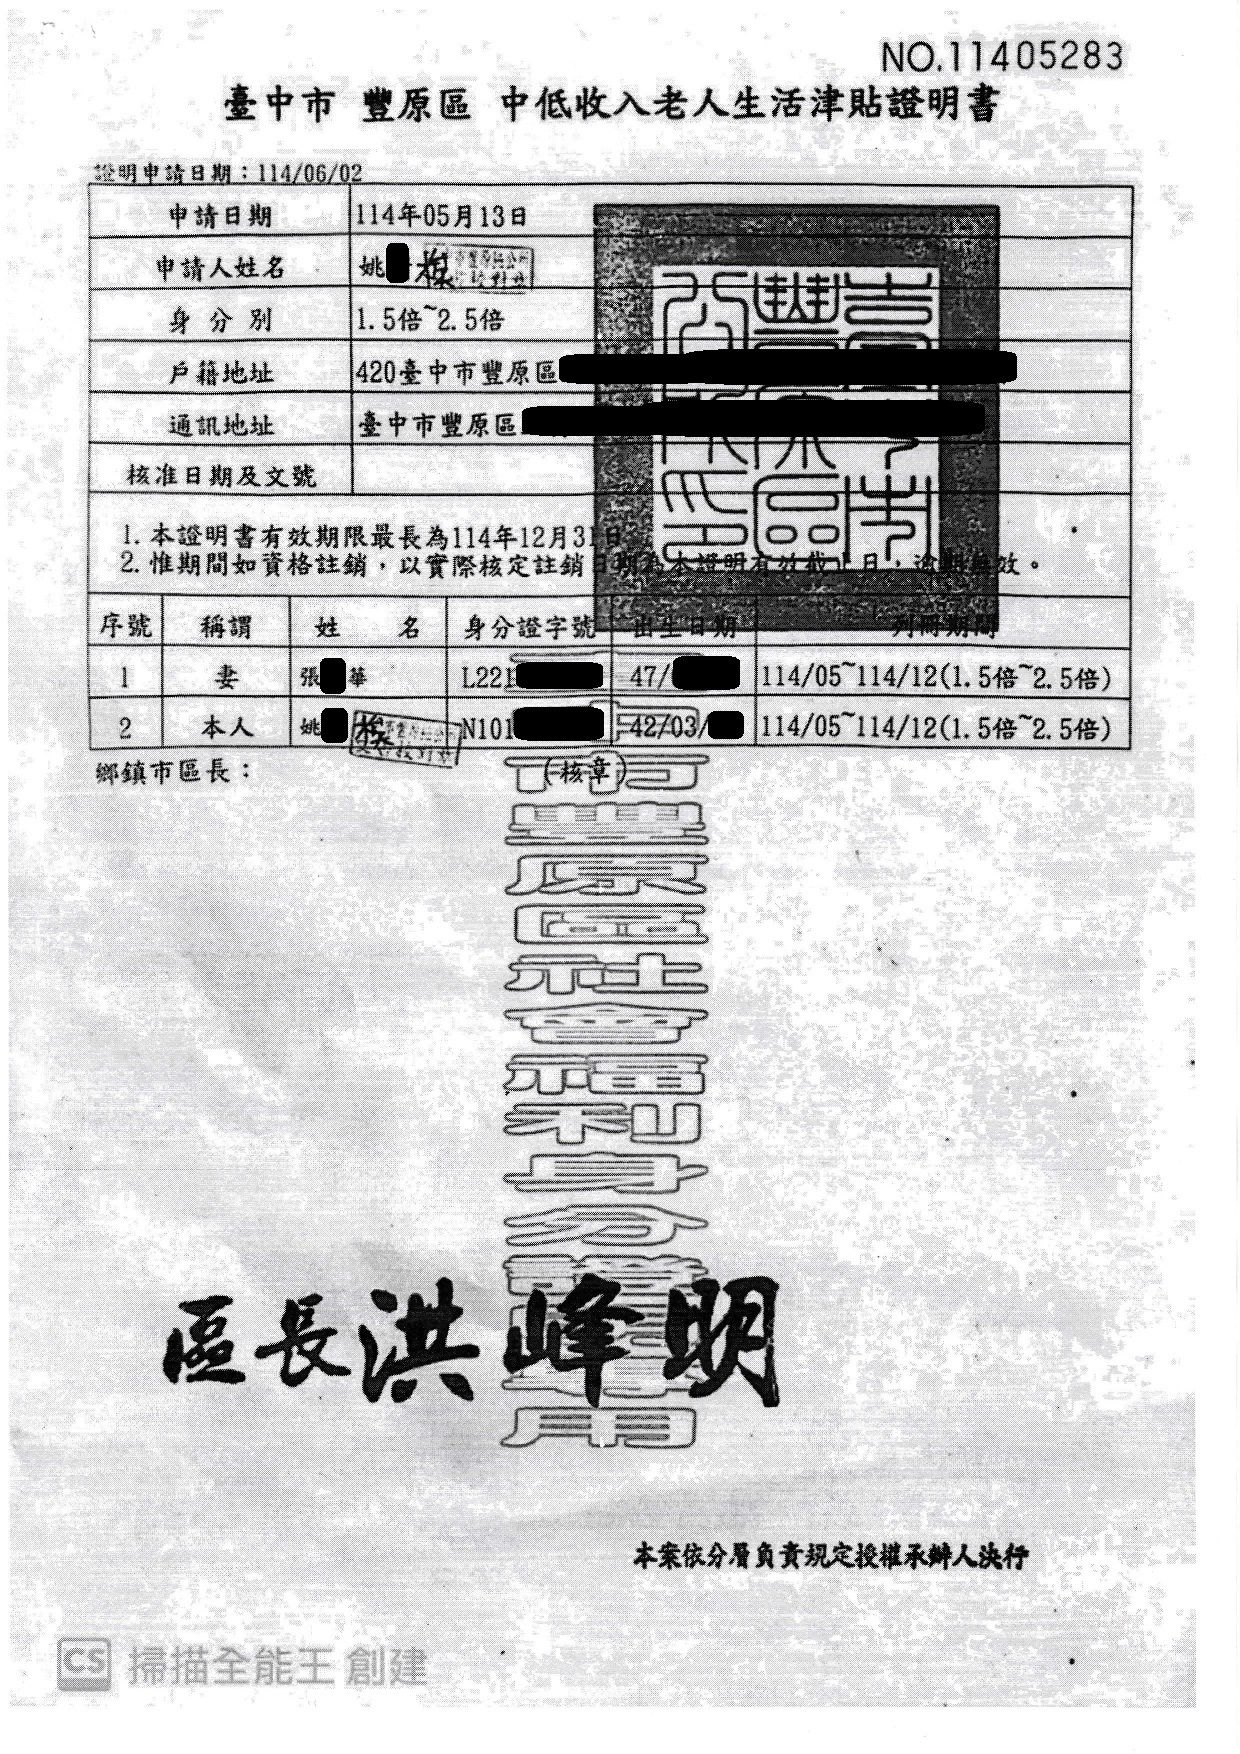 NO.11405283
臺中市 豐原區 中低收入老人生活津貼證明書
證明申請日期：114/06/02
申請日期 114年05月13日
申請人姓名 姚
身分別 1.5倍~2.5倍
戶籍地址 420臺中市豐原區
通訊地址 臺中市豐原區
核准日期及文號
1. 本證明書有效期限最長為114年12月31日
2. 惟期間如資格註銷，以實際核定註銷日期為本證明有效截止日，逾期無效。
序號 稱謂 姓 名 身分證字號 出生日期 列冊期間
1 妻 張 華 L221 47/ 114/05~114/12(1.5倍~2.5倍)
2 本人 姚 N101 42/03/ 114/05~114/12(1.5倍~2.5倍)
鄉鎮市區長： (核章)
豐原區社會福利身分證
用
區長洪峰明
本案依分層負責規定授權承辦人決行
CS 掃描全能王 創建